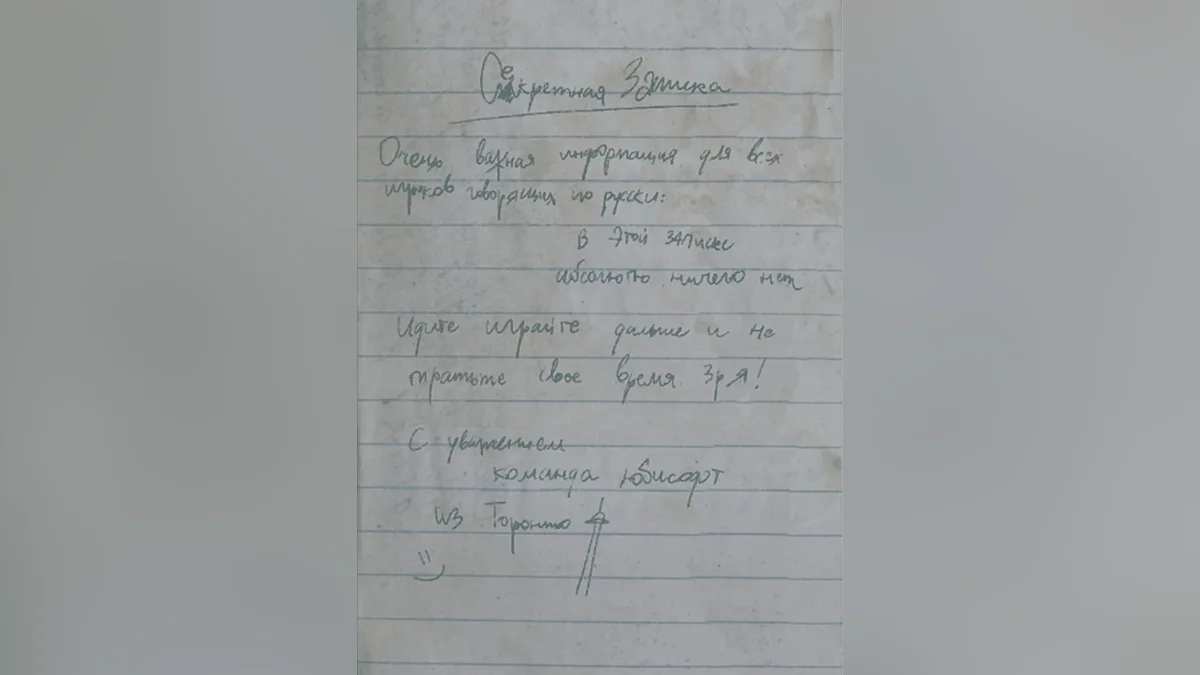 Секретная Записка
Очень важная информация для всех
игроков говорящих по русски:
В этой записке
абсолютно ничего нет
Идите играйте дальше и не
тратьте свое время зря!
С уважением
команда Юбисофт
из Торонто